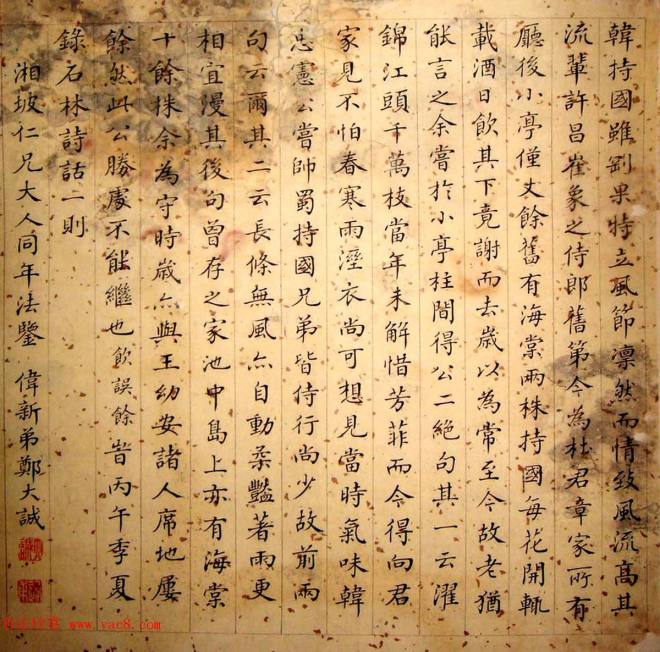 韓持國雖剛果特立風節凛然而情致風流髙其
流輩許昌崔象之侍郎舊第今為杜君章家所有
廳後小亭僅丈餘舊有海棠兩株持國每花開輒
載酒日飲其下竟謝而去歲以為常至今故老猶
能言之余嘗於小亭柱間得公二絕句其一云濯
錦江頭千萬枝當年未解惜芳菲而今得向君
家見不怕春寒雨溼衣尚可想見當時氣味韓
忠憲公嘗帥蜀持國兄弟皆侍行尚少故前兩
句云爾其二云長條無風亦自動柔豔著雨更
相宜漫其後句曾存之家池中島上亦有海棠
十餘株余為守時歲亦與王幼安諸人席地屢
餘然此公勝處不能繼也飲誤餘 旹丙午季夏
錄石林詩話二則
湘坡仁兄大人同年法鑒 偉新弟鄭大誠
www.yac8.com